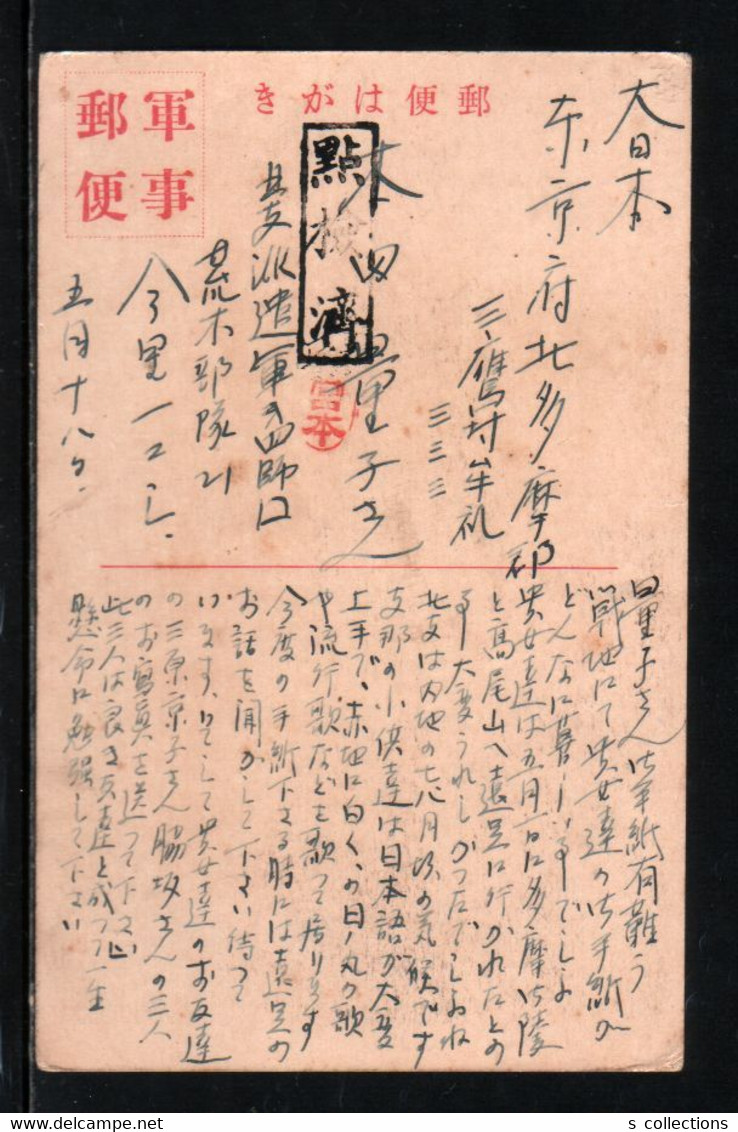 軍事
郵便
郵便はがき
點檢濟
宮本
大日本
東京府北多摩郡
三鷹村牟礼
三三三
木田量子さん
北支派遣軍
荒木部隊
今里
五月十八日
量子さん御手紙有難う
戦地にて貴女達の御手紙が
どんなに
貴女達は五月一日に多摩御陵
と高尾山へ遠足に行かれたとの
事大変うれしかったでしょうね
北支は内地の七八月頃の気候です
支那の小供達は日本語が大変
上手で、赤地に白くの日ノ丸の歌
や流行歌などを歌って居ります
今度の手紙下さる時には遠足の
お話を聞かして下さい待って
います、そして貴女達のお友達
の三原京子さん脇坂さんの三人
のお寫真を送って下さい
此三人は良き友達と成って一生
懸命に勉強して下さい
s collections